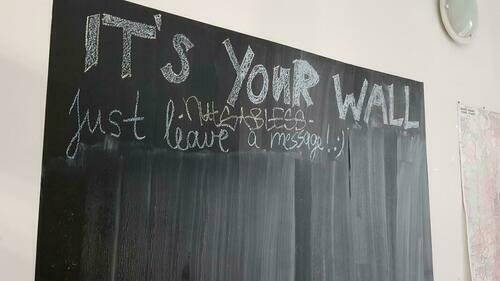 IT'S YOUR WALL
just leave a message! :)